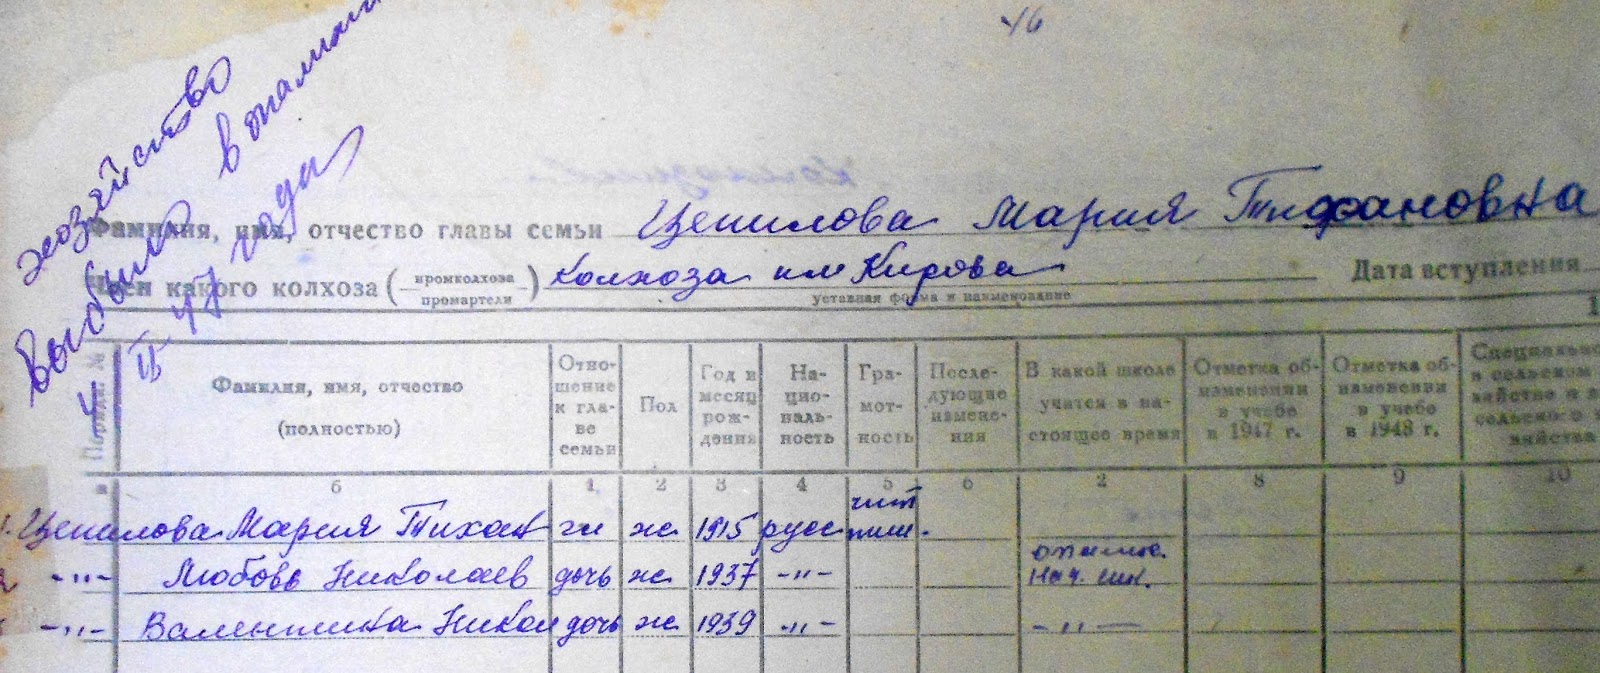 46
хозяйство
выбыло в
4 IV 47 года
Фамилия, имя, отчество главы семьи Цепилова Мария Тифановна
Член какого колхоза (промколхоза промартели) Колхоза им Кирова Дата вступления
уставная форма и наименование
№ Фамилия, имя, отчество (полностью) Отно-шение к гла-ве семьи Пол Год и месяц рож-дения На-цио-наль-ность Гра-мот-ность После-дующие измене-ния В какой школе учится в на-стоящее время Отметка об изменении в учебе в 1947 г. Отметка об изменении в учебе в 1948 г.
б 1 2 3 4 5 6 7 8 9 10
1. Цепилова Мария Тихан гл ж 1915 русс чит пиш.
2 -"- Любовь Николаев дочь ж 1937 -"- нач. шк.
-"- Валентина Никол дочь ж 1939 -"- -"-